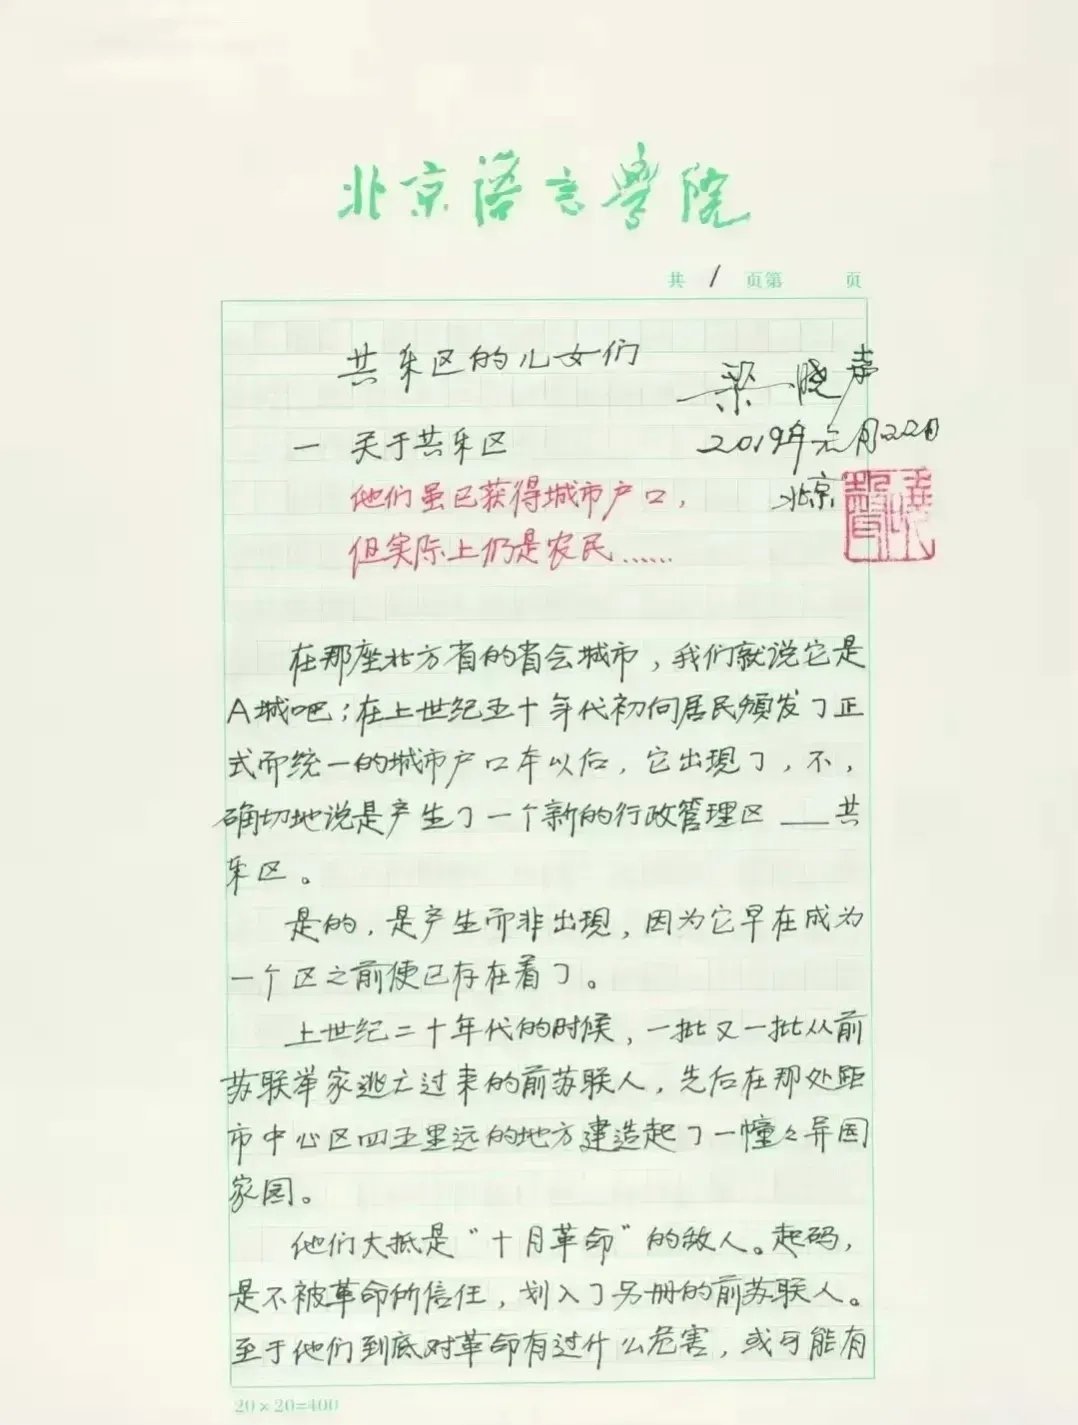 北京语言学院
共 1 页第 页
共乐区的儿女们
梁晓声
一 关于共乐区
2019年元月22日
他们虽已获得城市户口,
北京
但实际上仍是农民……
在那座北方省的省会城市,我们就说它是
A城吧;在上世纪五十年代初向居民颁发了正
式而统一的城市户口本以后,它出現了,不,
确切地说是产生了一个新的行政管理区——共
乐区。
是的,是产生而非出現,因为它早在成为
一个区之前便已存在着了。
上世纪二十年代的时候,一批又一批从前
苏联举家逃亡过来的前苏联人,先后在那处距
市中心区四五里远的地方建造起了一幢々异国
家园。
他们大抵是"十月革命"的敌人。起码,
是不被革命所信任,划入了另册的前苏联人。
至于他们到底对革命有过什么危害,或可能有
20×20=400